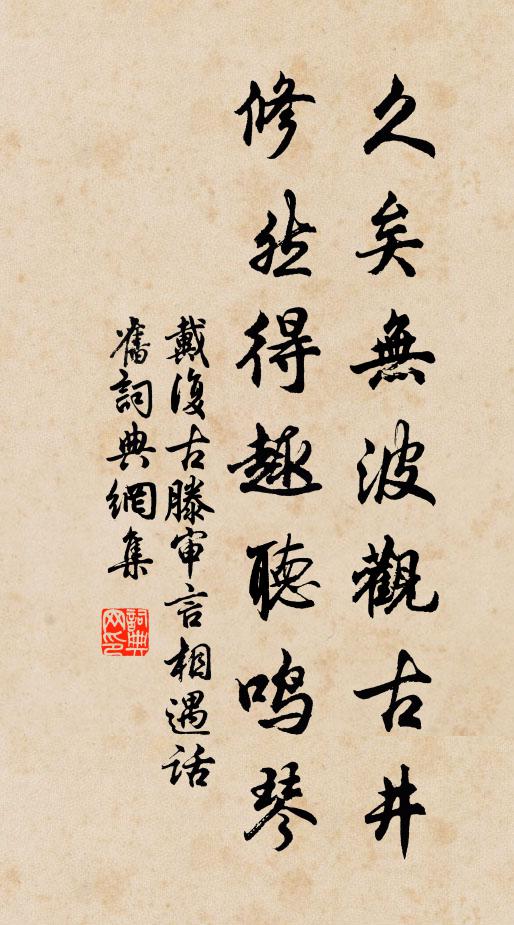 久矣無波觀古井
修然得趣聽鸣琴
戴復古滕审言相遇話
舊詞典網集
詞典网印